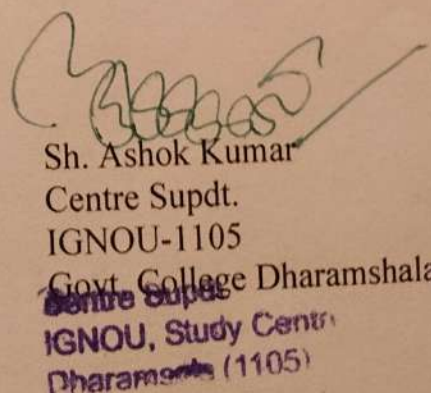 Sh. Ashok Kumar
Centre Supdt.
IGNOU-1105
Govt. College Dharamshala
Centre Supdt
IGNOU, Study Centr
Dharamsala (1105)